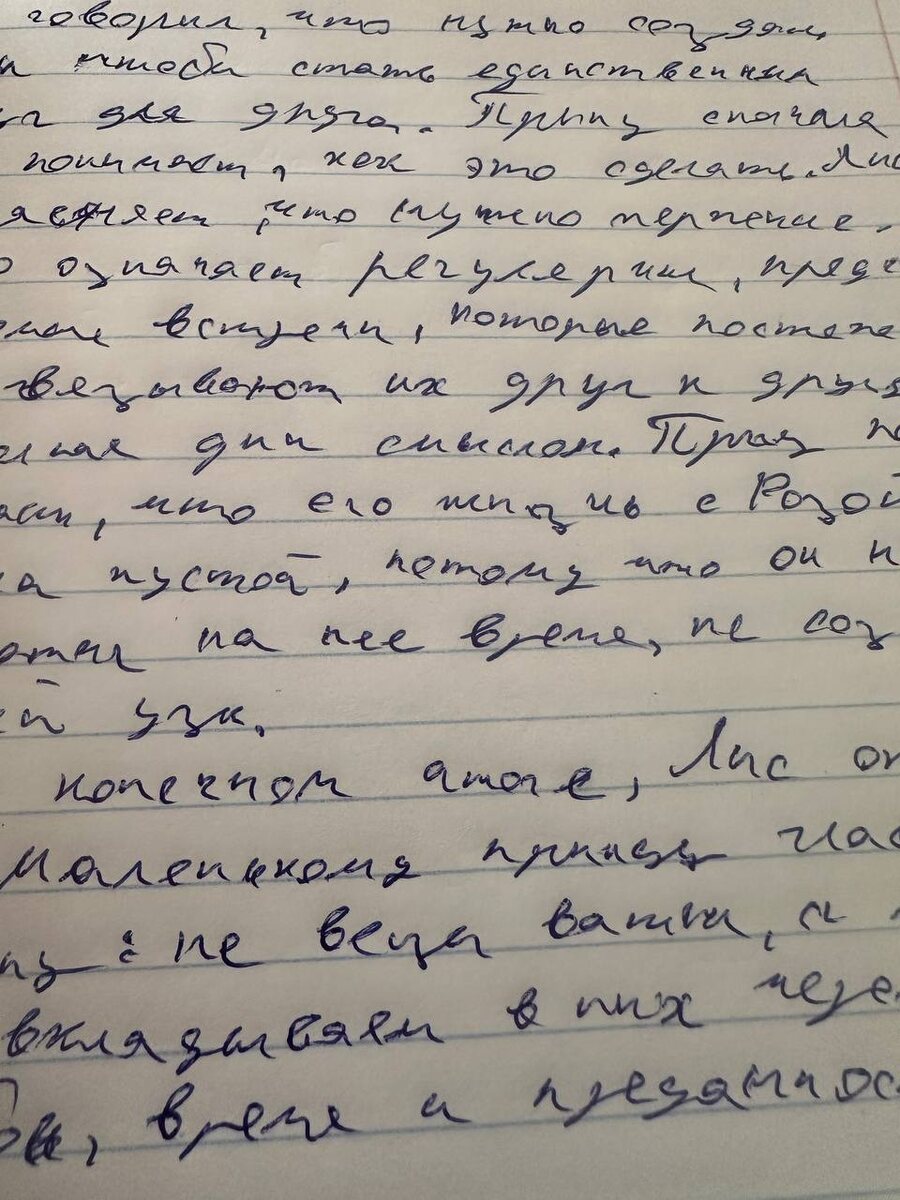 говорил, что нужно создан
и чтоби стать единственни
для друга. Принц сначала
понимает, как это сделать. Лис
ясняет, что нужно терпение.
о означает регулярни, предс
встречи, которые постепе
вязывают их друг к друг
дни смыслом. Принц по
что его жизнь с Розой
а пустой, потому что он н
на нее время, не соз
й узи.
конечном итоге, Лис от
Маленькому принцу
не вещи важни, а
вкладываем в них через
, время и преданнос